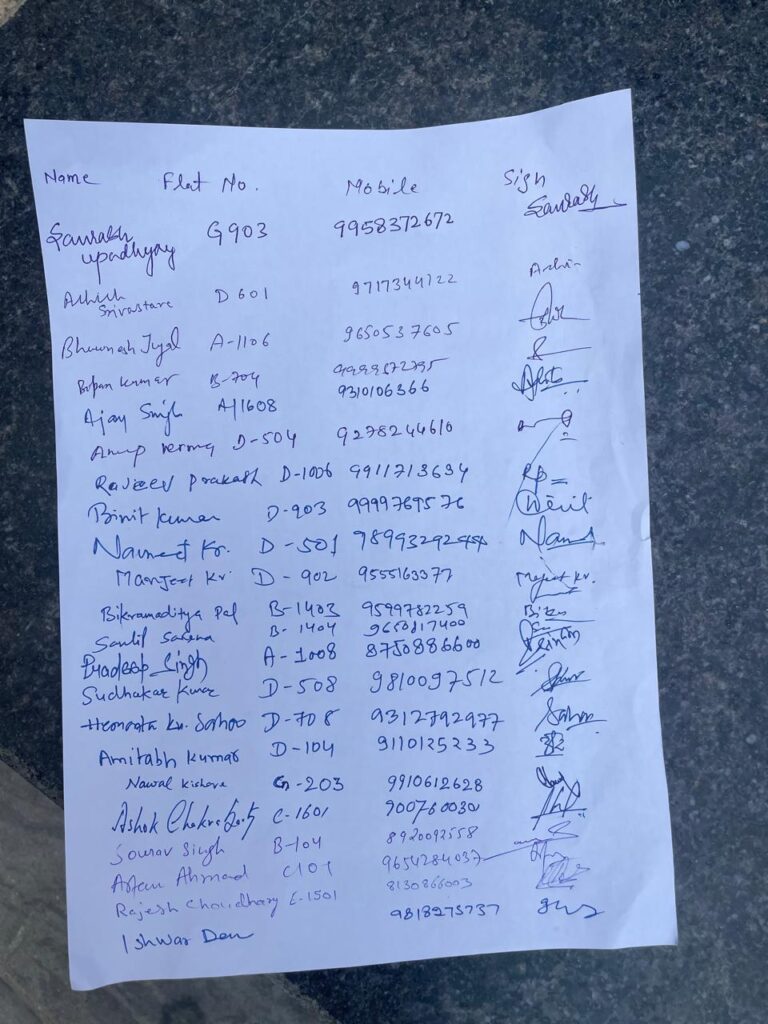 Name Flat No. Mobile Sign
Saurabh G903 9958372672 Saurabh
upadhyay
Ashish D 601 9717344122 Ashis
Srivastava
Bhuwnesh Juyal A-1106 9650537605
Bipan Kumar B-704
Ajay Singh A/1608 9310106366
Anup Verma D-504 9278244610
Rajeev Prakash D-1006 9911713634 Rp
Binit Kumar D-903 9999769576
Navneet Kr. D-501
Manjeet Kr. D-902 9555163077 Manjeet Kr.
Bikramaditya Pal B-1403 9599782259
Saxena B-1404 9650817400
Pradeep Singh A-1008 8750886600
Sudhakar Kumar D-508 9810097512
Kr. Sahoo D-708 9312792977 Sahoo
Amitabh Kumar D-104 9110125233
Nawal Kishore G-203 9910612628
Ashok C-1601 900760030
Sourav Singh B-104 8920092558
Ahmad C101 9654284037
Rajesh Choudhary E-1501 8130866003
Ishwar 9818275737